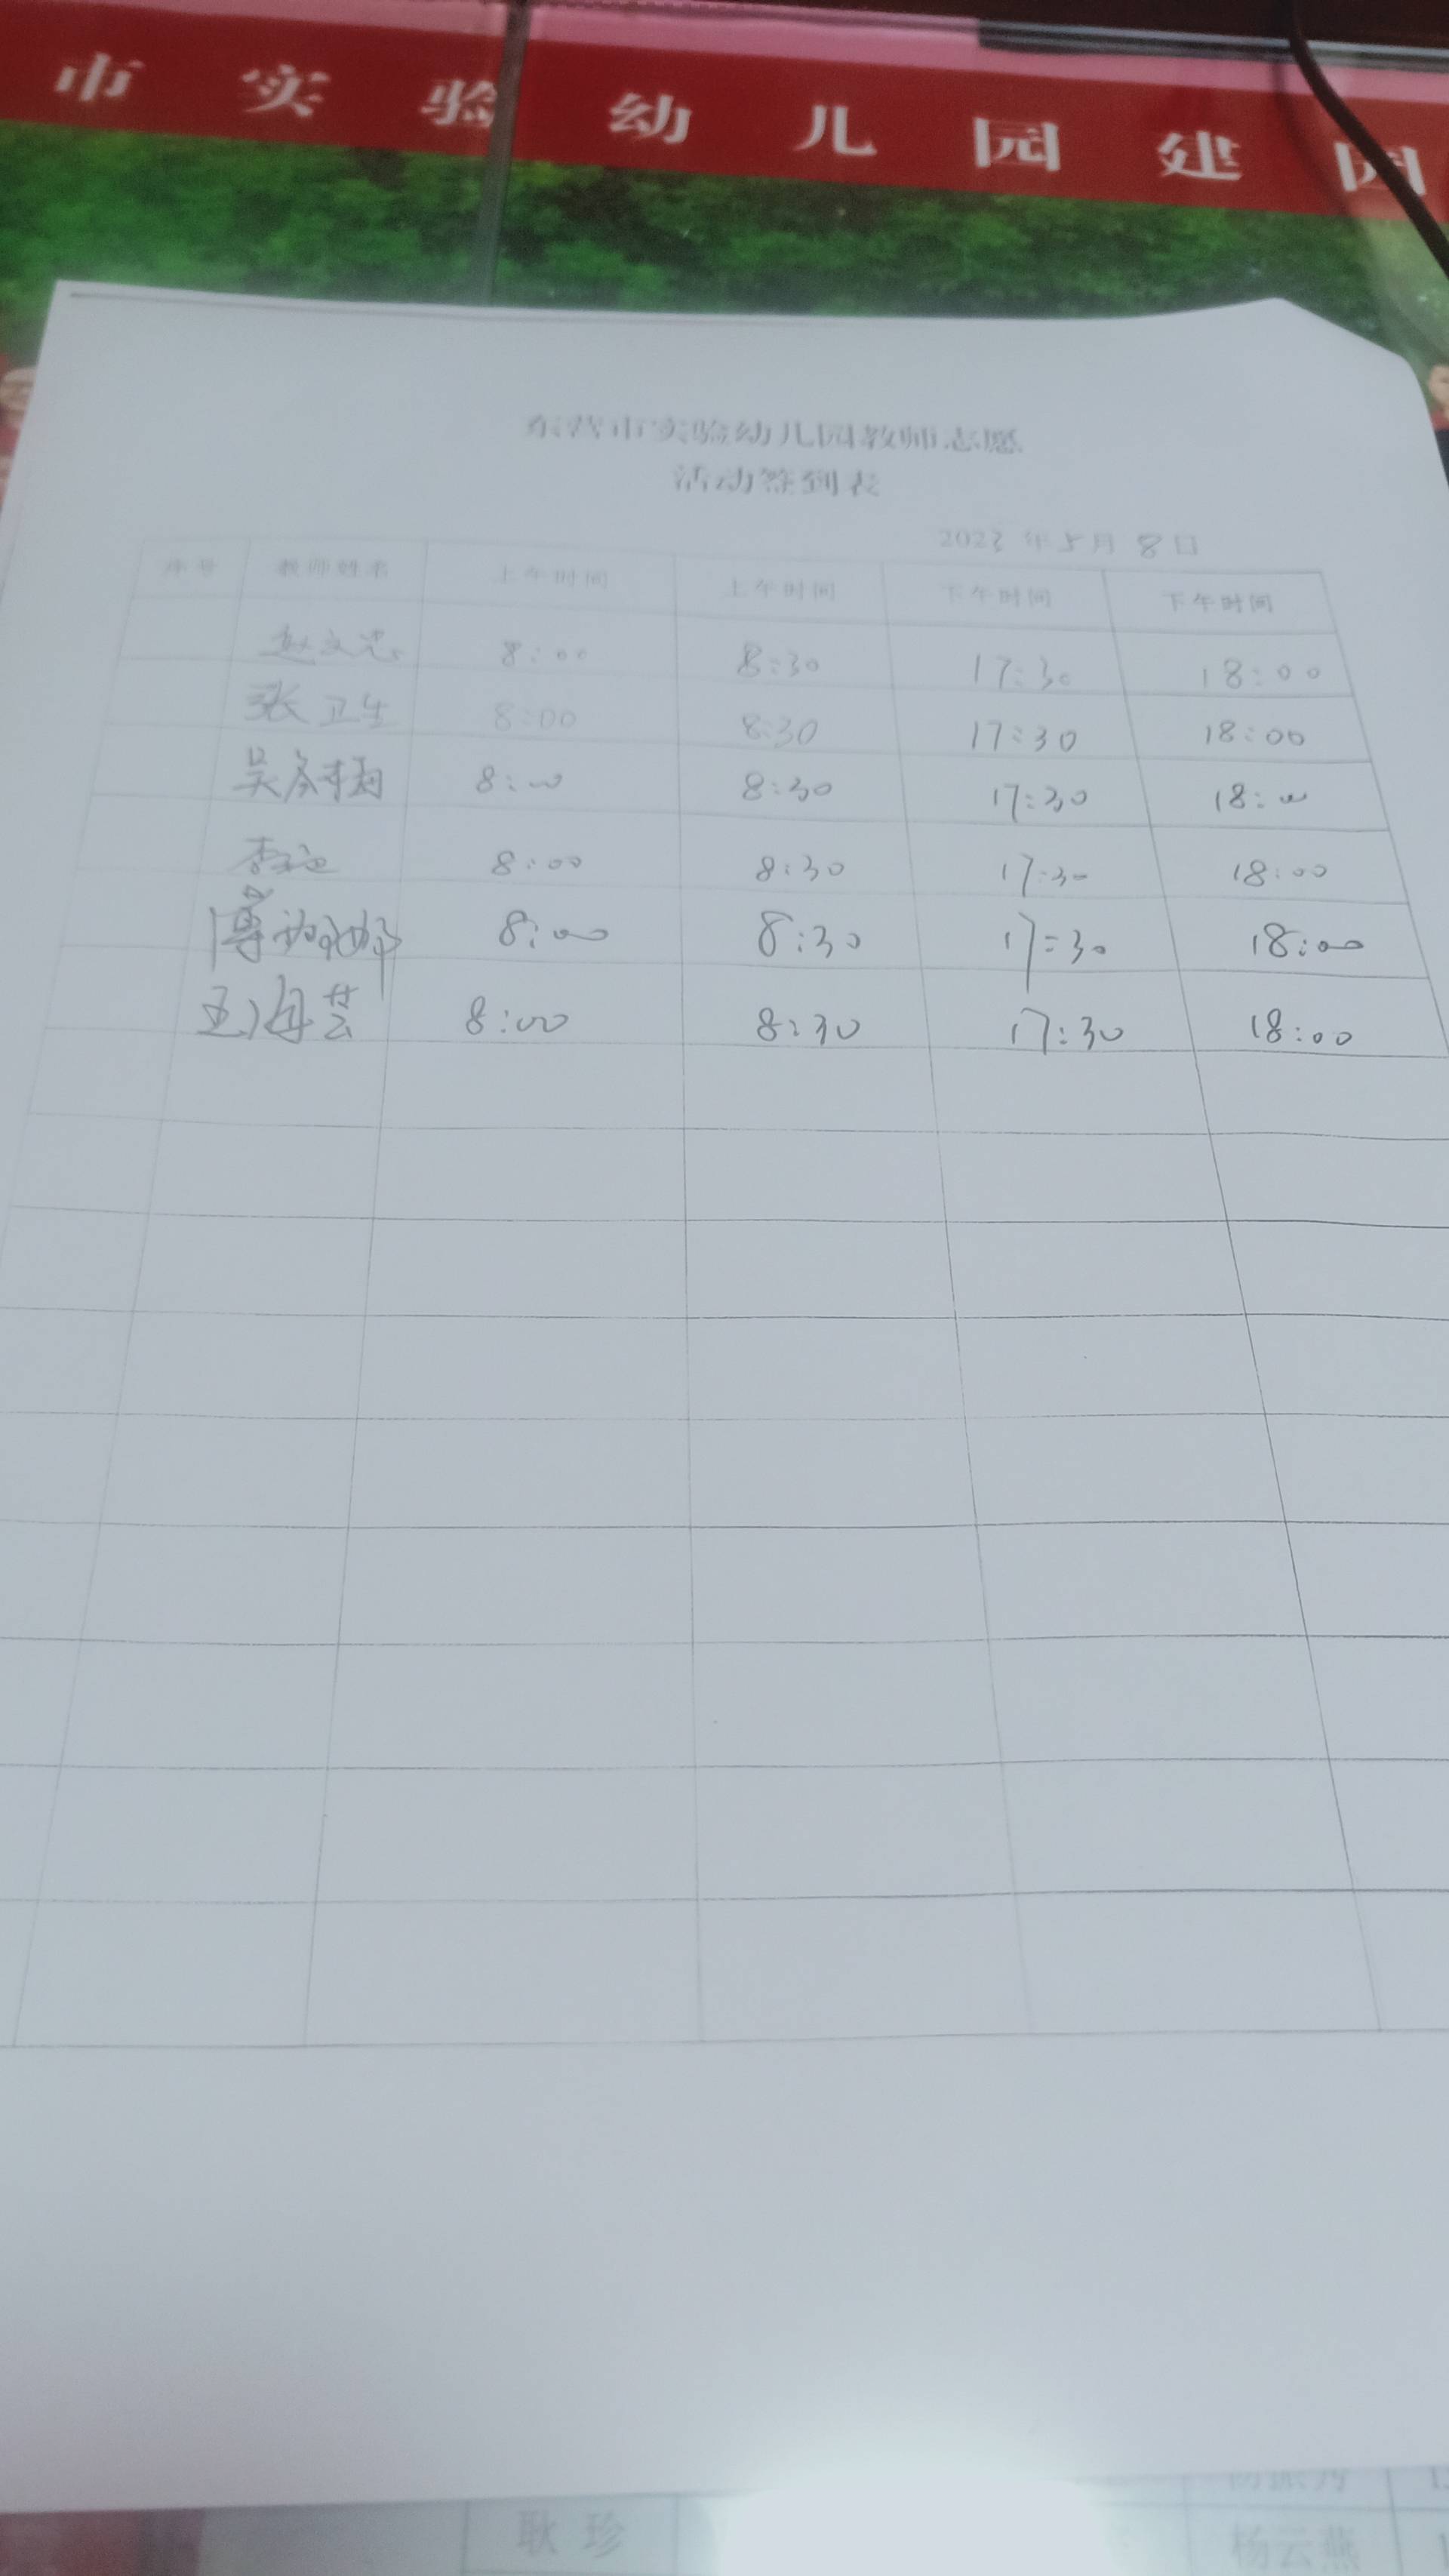 市实验幼儿园建园
东营市实验幼儿园教师志愿
活动签到表
2023年5月8日
序号 教师姓名 上午时间 上午时间 下午时间 下午时间
8:00 8:30 17:30 18:00
张卫生 8:00 8:30 17:30 18:00
吴 8:00 8:30 17:30 18:00
李 8:00 8:30 17:30 18:00
8:00 8:30 17:30 18:00
王海芸 8:00 8:30 17:30 18:00
耿珍 杨云燕